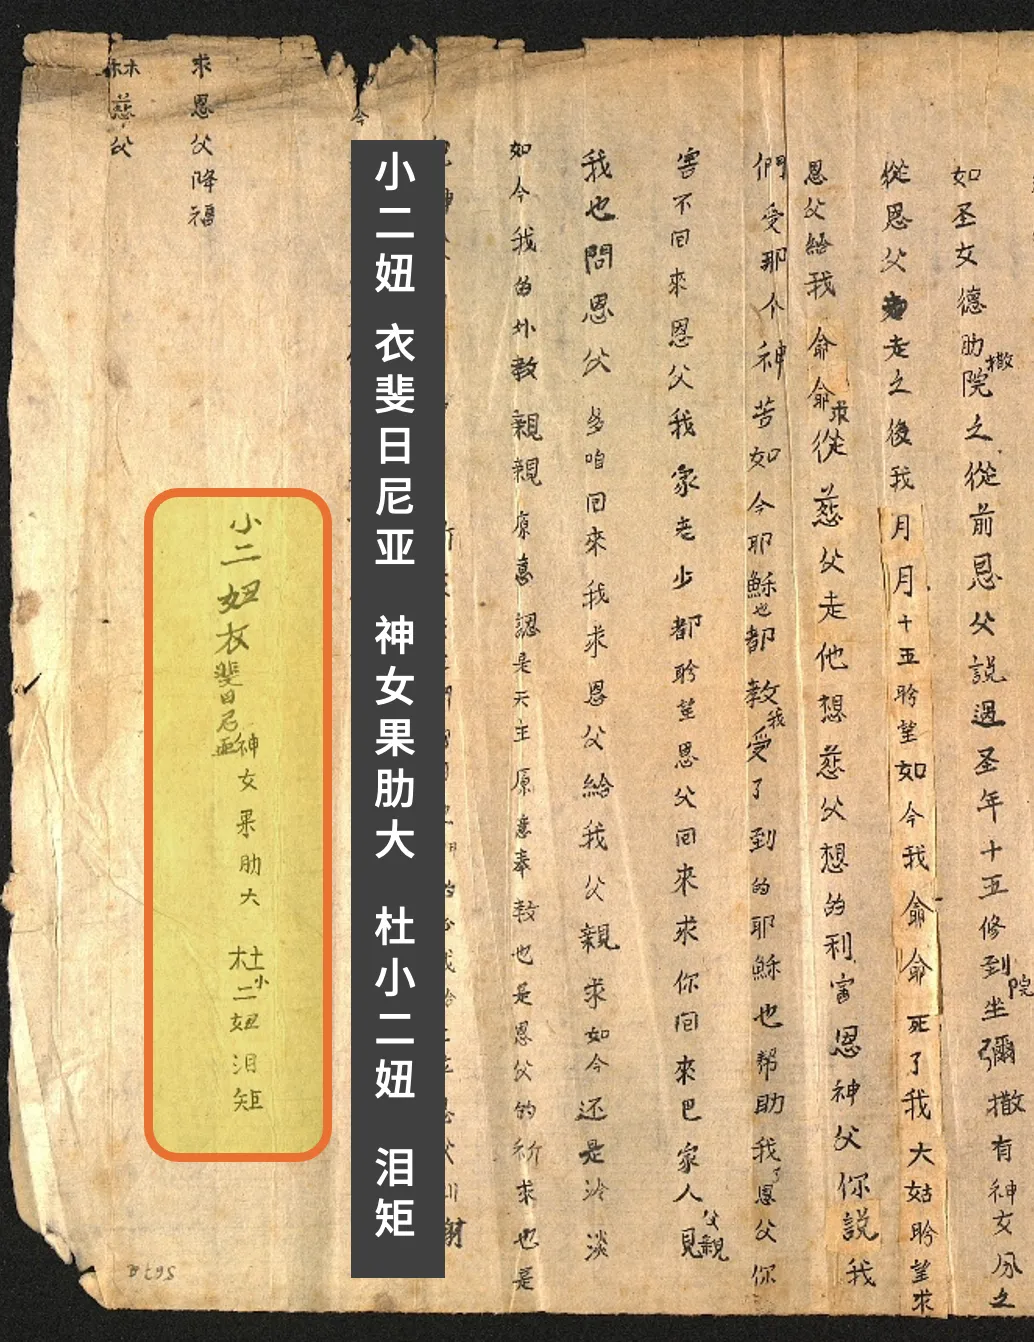 如圣女德肋撒院之從前恩父説過圣年十五修到院坐彌撒有神女分之
從恩父走之後我月月十五盻望如今我俞俞死了我大姑盻望求
恩父給我俞俞求從慈父走他想慈父想的利害恩神父你説我
們受那个神苦如今耶穌也都教我受了到的耶穌也帮助我了恩父你
害不回來恩父我家老少都盻望恩父回來求你回來巴家人見父親
我也問恩父多咱回來我求恩父給我父親求如今还是泠淡
如今我的外教親親原意認是天主原意奉教也是恩父的祈求也是
小二妞 衣斐日尼亚 神女果肋大 杜小二妞 泪矩
小二妞衣斐日尼亚神女果肋大 杜小二妞泪矩
求恩父降福
林慈父